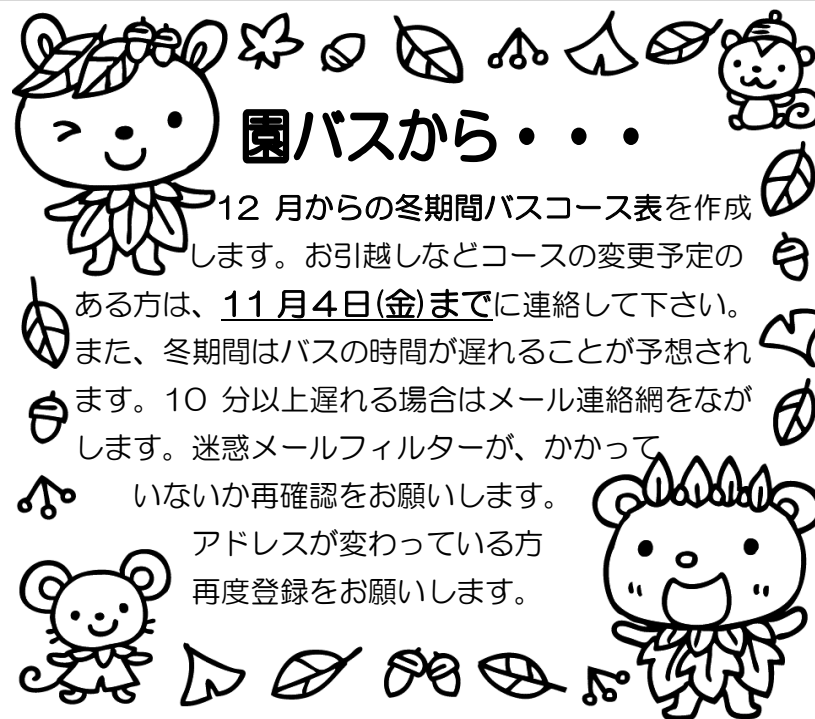 園バスから・・・
12 月からの冬期間バスコース表を作成
します。お引越しなどコースの変更予定の
ある方は、11 月4日(金)までに連絡して下さい。
また、冬期間はバスの時間が遅れることが予想され
ます。10 分以上遅れる場合はメール連絡網をなが
します。迷惑メールフィルターが、かかって
いないか再確認をお願いします。
アドレスが変わっている方
再度登録をお願いします。